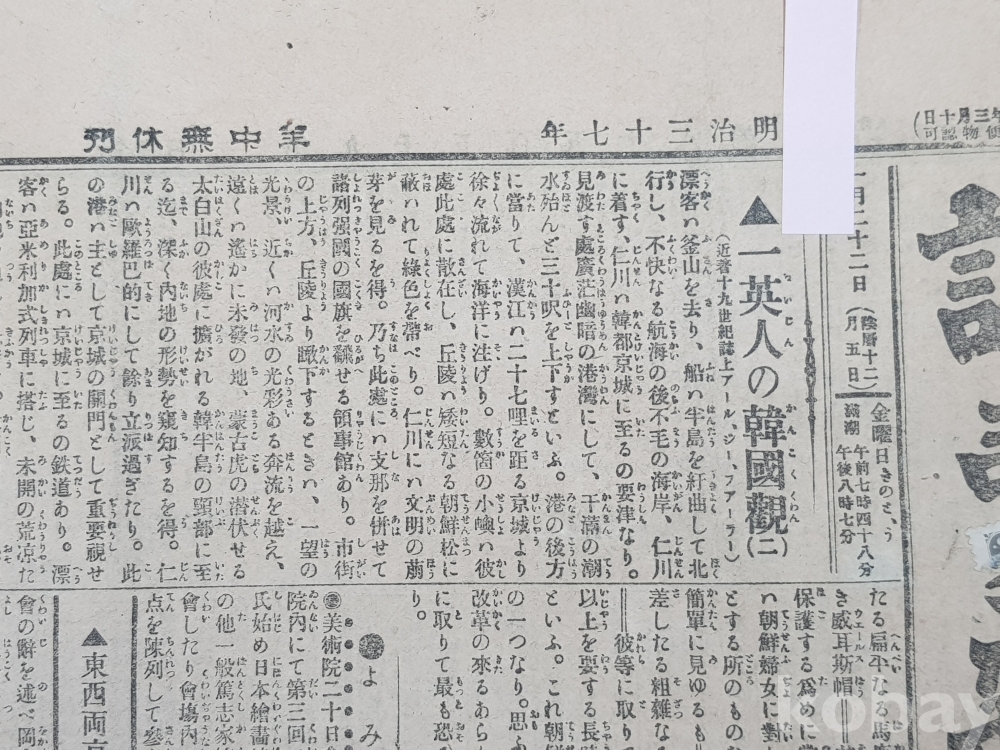 年三月十日
便物認可)
明治三十七年
年中無休刊
一月二十二日
(陰暦十二
月五日)
金曜日きのと、う
満潮
午前七時四十八分
午後八時七分
▲一英人の韓國觀(二)
(近著十九世紀誌上アール、ジー、フアーラー)
漂客ハ釜山を去り、船ハ半島を紆曲して北
行し、不快なる航海の後不毛の海岸、仁川
に着す、仁川ハ韓都京城に至るの要津なり。
見渡す處廣茫幽暗の港灣にして、干滿の潮
水殆んど三十呎を上下すといふ。港の後方
に當りて、漢江ハ二十七哩を距る京城より
徐々流れて海洋に注げり。數箇の小嶼ハ彼
處此處に散在し、丘陵ハ矮短なる朝鮮松に
蔽ハれて綠色を帶べり。仁川にハ文明の萠
芽を見るを得。乃ち此處にハ支那を併せて
諸列强國の國旗を飜せる領事館あり。市街
の上方、丘陵より瞰下するときハ、一望の
光景、近くハ河水の光彩ある奔流を越え、
遠くハ遙かに未發の地、蒙古虎の潜伏せる
太白山の彼處に擴がれる韓半島の頸部に至
る迄、深く內地の形勢を窺知するを得。仁
川ハ歐羅巴的にして餘り立派過ぎたり。此
の港ハ主として京城の關門として重要視せ
らる。此處にハ京城に至るの鉄道あり。漂
客ハ亞米利加式列車に搭じ、未開の荒凉た
たる扁平なる馬
き威耳斯帽
保護する爲めに
ハ朝鮮婦女に對
とする所のもの
簡單に見ゆるも
差したる粗雜な
彼等に取り
以上を要する長時
といふ。これ朝鮮
の一つなり。思ふ
改革の來るあらし
に取りて最も恐
り。
よみ
美術院二十日
院內にて第三回
氏始め日本繪畫
の他一般篤志家
會したり會塲內
点を陳列して參
▲東西両京
會の辭を述べ岡
kobay